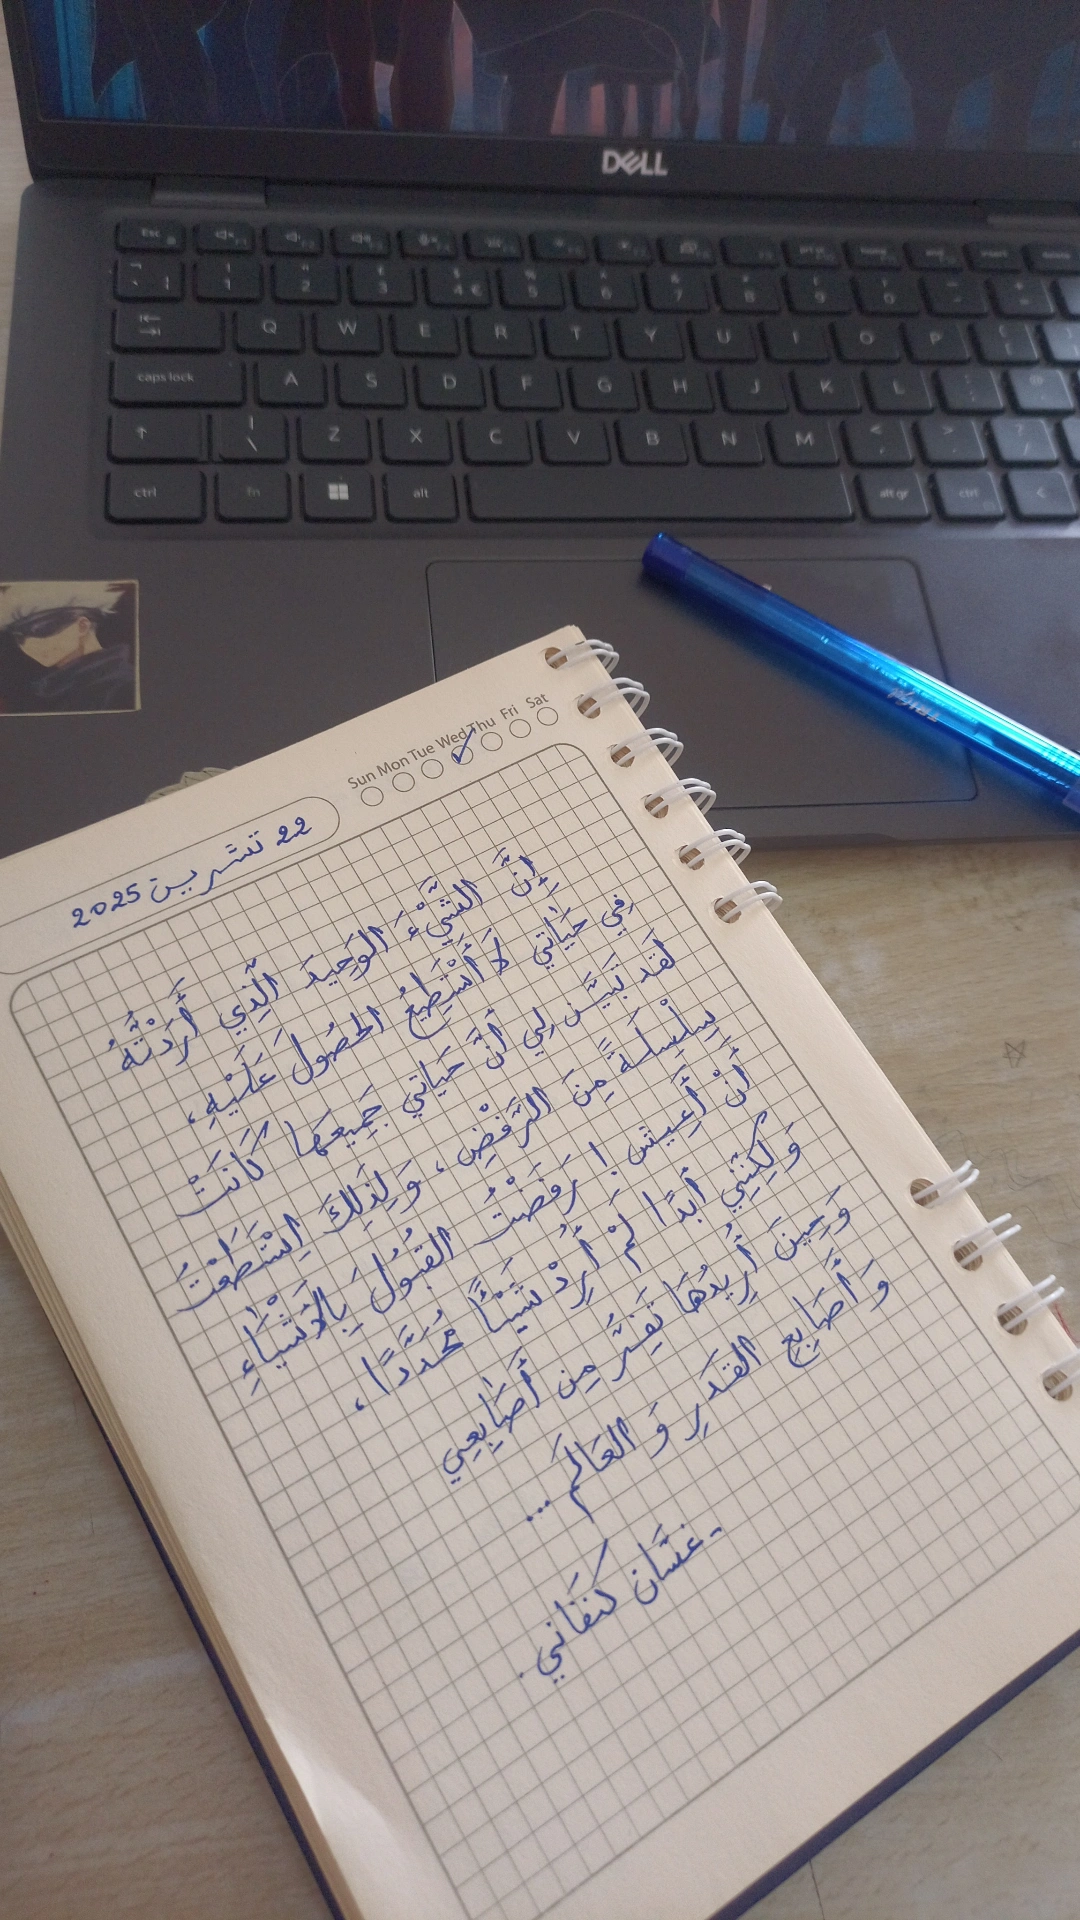 DELL
Esc
1 2 3 4 € 5 6 7 8 9 0
Q W E R T Y U I O P
caps lock A S D F G H J K L
Z X C V B N M
ctrl fn alt alt gr ctrl
Sun Mon Tue Wed Thu Fri Sat
22 تشرين 2025
إِنَّ الشَّيْءَ الوَحِيدَ الَّذِي أَرَدْتُّهُ
فِي حَيَاتِي لَا أَسْتَطِيعُ الحُصُولَ عَلَيْهِ،
لَقَد تَبَيَّنَ لِي أَنَّ حَيَاتِي جَمِيعَهَا كَانَتْ
سِلْسِلَةً مِنَ الرَّفْضِ، وَلِذَلِكَ اِسْتَطَعْتُ
أَنْ أَعِيش! رَفَضْتُ القُبُولَ بِالأَشْيَاءِ
وَلَكِنَّنِي أَبَدًا لَمْ أُرِدْ شَيْئًا مُحَدَّدًا،
وَحِينَ أُرِيدُهَا تَفِرُّ مِن أَصَابِعِي
وَأَصَابِعِ القَدَرِ وَ العَالَمِ...
- غسَّان كَنَفَانِي.